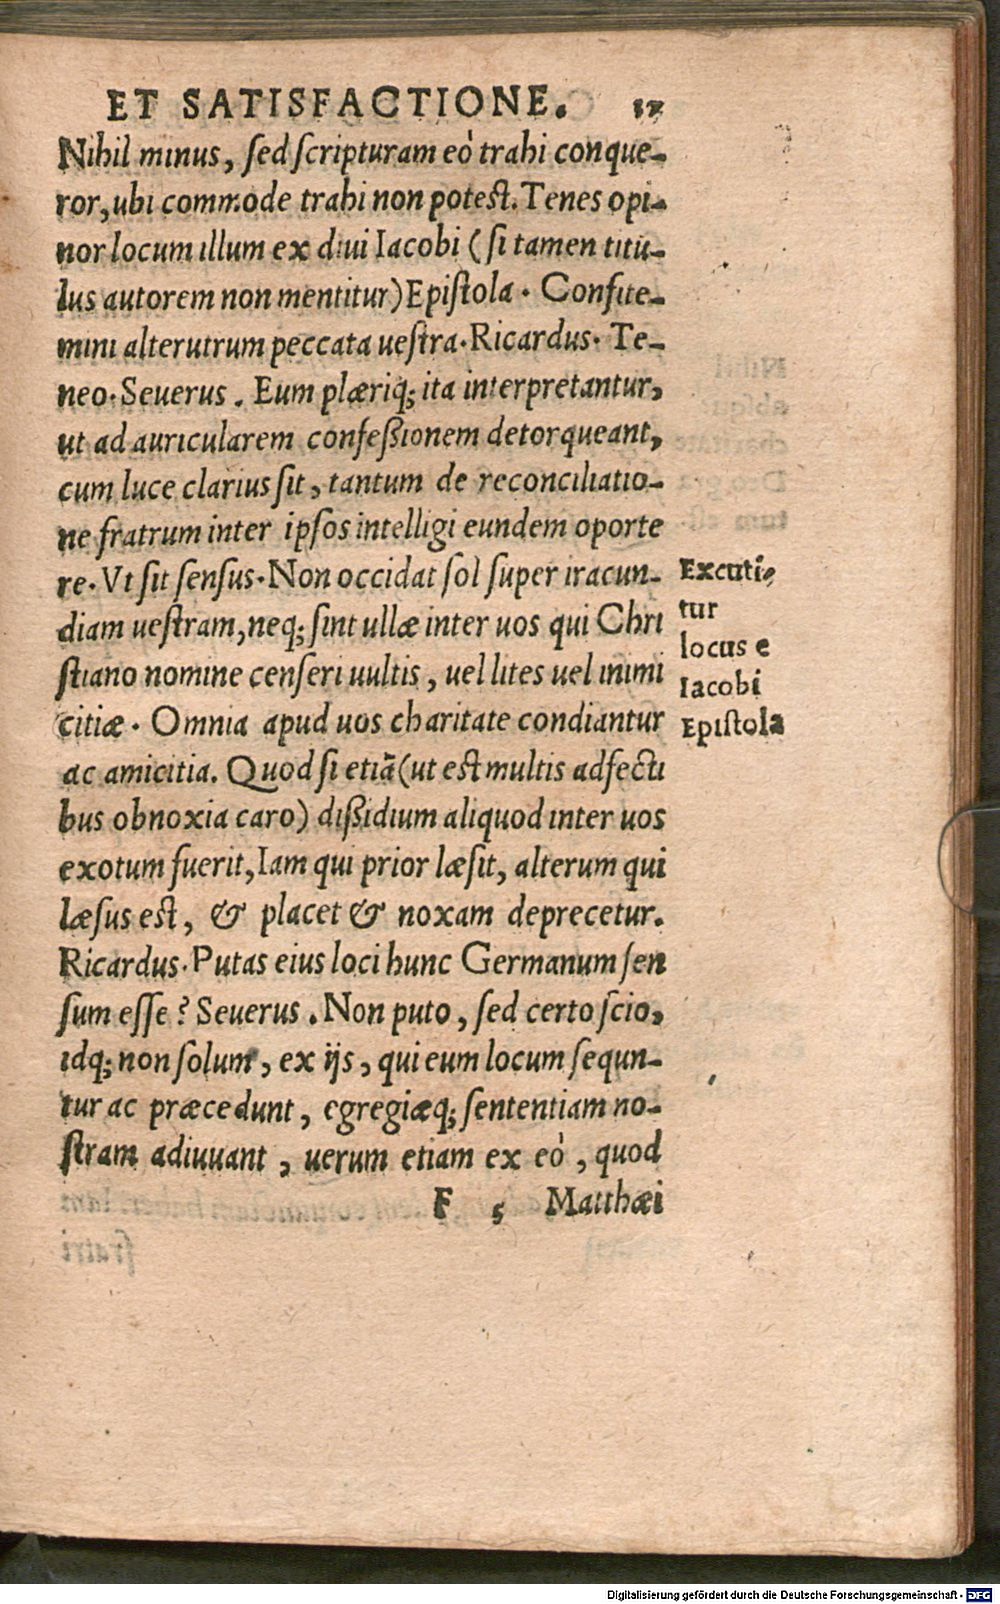 ET SATISFACTIONE. 17
Nihil minus, sed scripturam eò trahi conque-
ror, ubi commode trahi non potest. Tenes opi-
nor locum illum ex diui Iacobi (si tamen titu-
lus autorem non mentitur) Epistola. Confite-
mini alterutrum peccata uestra. Ricardus. Te-
neo. Seuerus. Eum plæriq; ita interpretantur,
ut ad auricularem confeßionem detorqueant,
cum luce clarius sit, tantum de reconciliatio-
ne fratrum inter ipsos intelligi eundem oporte
re. Vt sit sensus. Non occidat sol super iracun-
diam uestram, neq; sint ullæ inter uos qui Chri
stiano nomine censeri uultis, uel lites uel inimi
citiæ. Omnia apud uos charitate condiantur
ac amicitia. Quod si etiā (ut est multis adfecti
bus obnoxia caro) dißidium aliquod inter uos
exotum fuerit, Iam qui prior læsit, alterum qui
læsus est, & placet & noxam deprecetur.
Ricardus. Putas eius loci hunc Germanum sen
sum esse? Seuerus. Non puto, sed certo scio,
idq; non solum, ex ijs, qui eum locum sequn-
tur ac præcedunt, egregiæq; sententiam no-
stram adiuuant, uerum etiam ex eò, quod
F 5 Matthæi
Excuti-
tur
locus e
Iacobi
Epistola
Digitalisierung gefördert durch die Deutsche Forschungsgemeinschaft - DFG